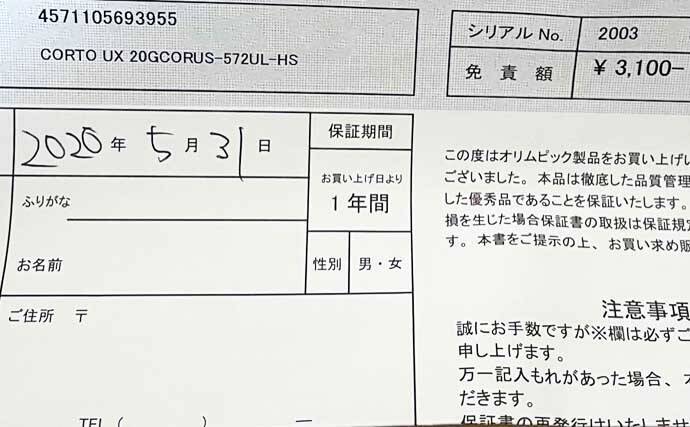 4571105693955
CORTO UX 20GCORUS-572UL-HS
シリアル No. 2003
免責額 ¥ 3,100-
2020年 5月 31日
保証期間
お買い上げ日より
1 年間
ふりがな
お名前
性別 男・女
ご住所 〒
TEL ( ) ―
この度はオリムピック製品をお買い上げい
ございました。本品は徹底した品質管理
した優秀品であることを保証いたします。
損を生じた場合保証書の取扱は保証規定
す。本書をご提示の上、お買い求め販
注意事項
誠にお手数ですが※欄は必ずご
申し上げます。
万一記入もれがあった場合、
だきます。
保証書の再発行はいたしませ